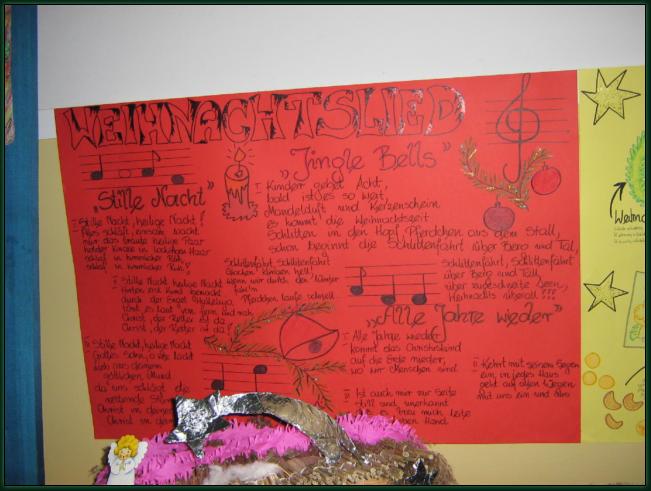 WEIHNACHTSLIED
„Stille Nacht"
I. Stille Nacht, heilige Nacht!
Alles schläft, einsam wacht
nur das traute heilige Paar
holder Knabe im lockigen Haar
schlaf in himmlischer Ruh,
schlaf in himmlischer Ruh!
II. Stille Nacht heilige Nacht
Hirten erst kund gemacht
durch der Engel Halleluja
tönt es laut von fern und nah
Christ, der Retter ist da
Christ, der Retter ist da!
III. Stille Nacht, heilige Nacht
Gottes Sohn, o wie lacht
Lieb aus deinem
göttlichen Mund
da uns schlägt die
rettende
Christ in deiner
Christ in
„Jingle Bells"
I. Kinder gebet Acht,
bald ist es so weit
Mandelduft und Kerzenschein
es kommt die Weihnachtszeit
Schlitten in den Hopf Pferdchen aus dem Stall,
schon beginnt die Schlittenfahrt über Berg und Tal,
Schlittenfahrt, Schlittenfahrt
Glocken klingen hell!
wenn wir durch den Winter
fahr'n
Pferdchen laufe schnell
Schlittenfahrt, Schlittenfahrt
über Berg und Tal,
über zugeschneite Seen,
überall!!!
„Alle Jahre wieder"
I. Alle Jahre wieder
kommt das Christuskind
auf die Erde nieder,
wo wir Menschen sind
II. Kehrt mit seinem Segen
ein in jedes Haus
geht auf allen Wegen
mit uns ein und
III. Ist auch mir zur Seite
still und unerkannt
es treu mich leite
Hand